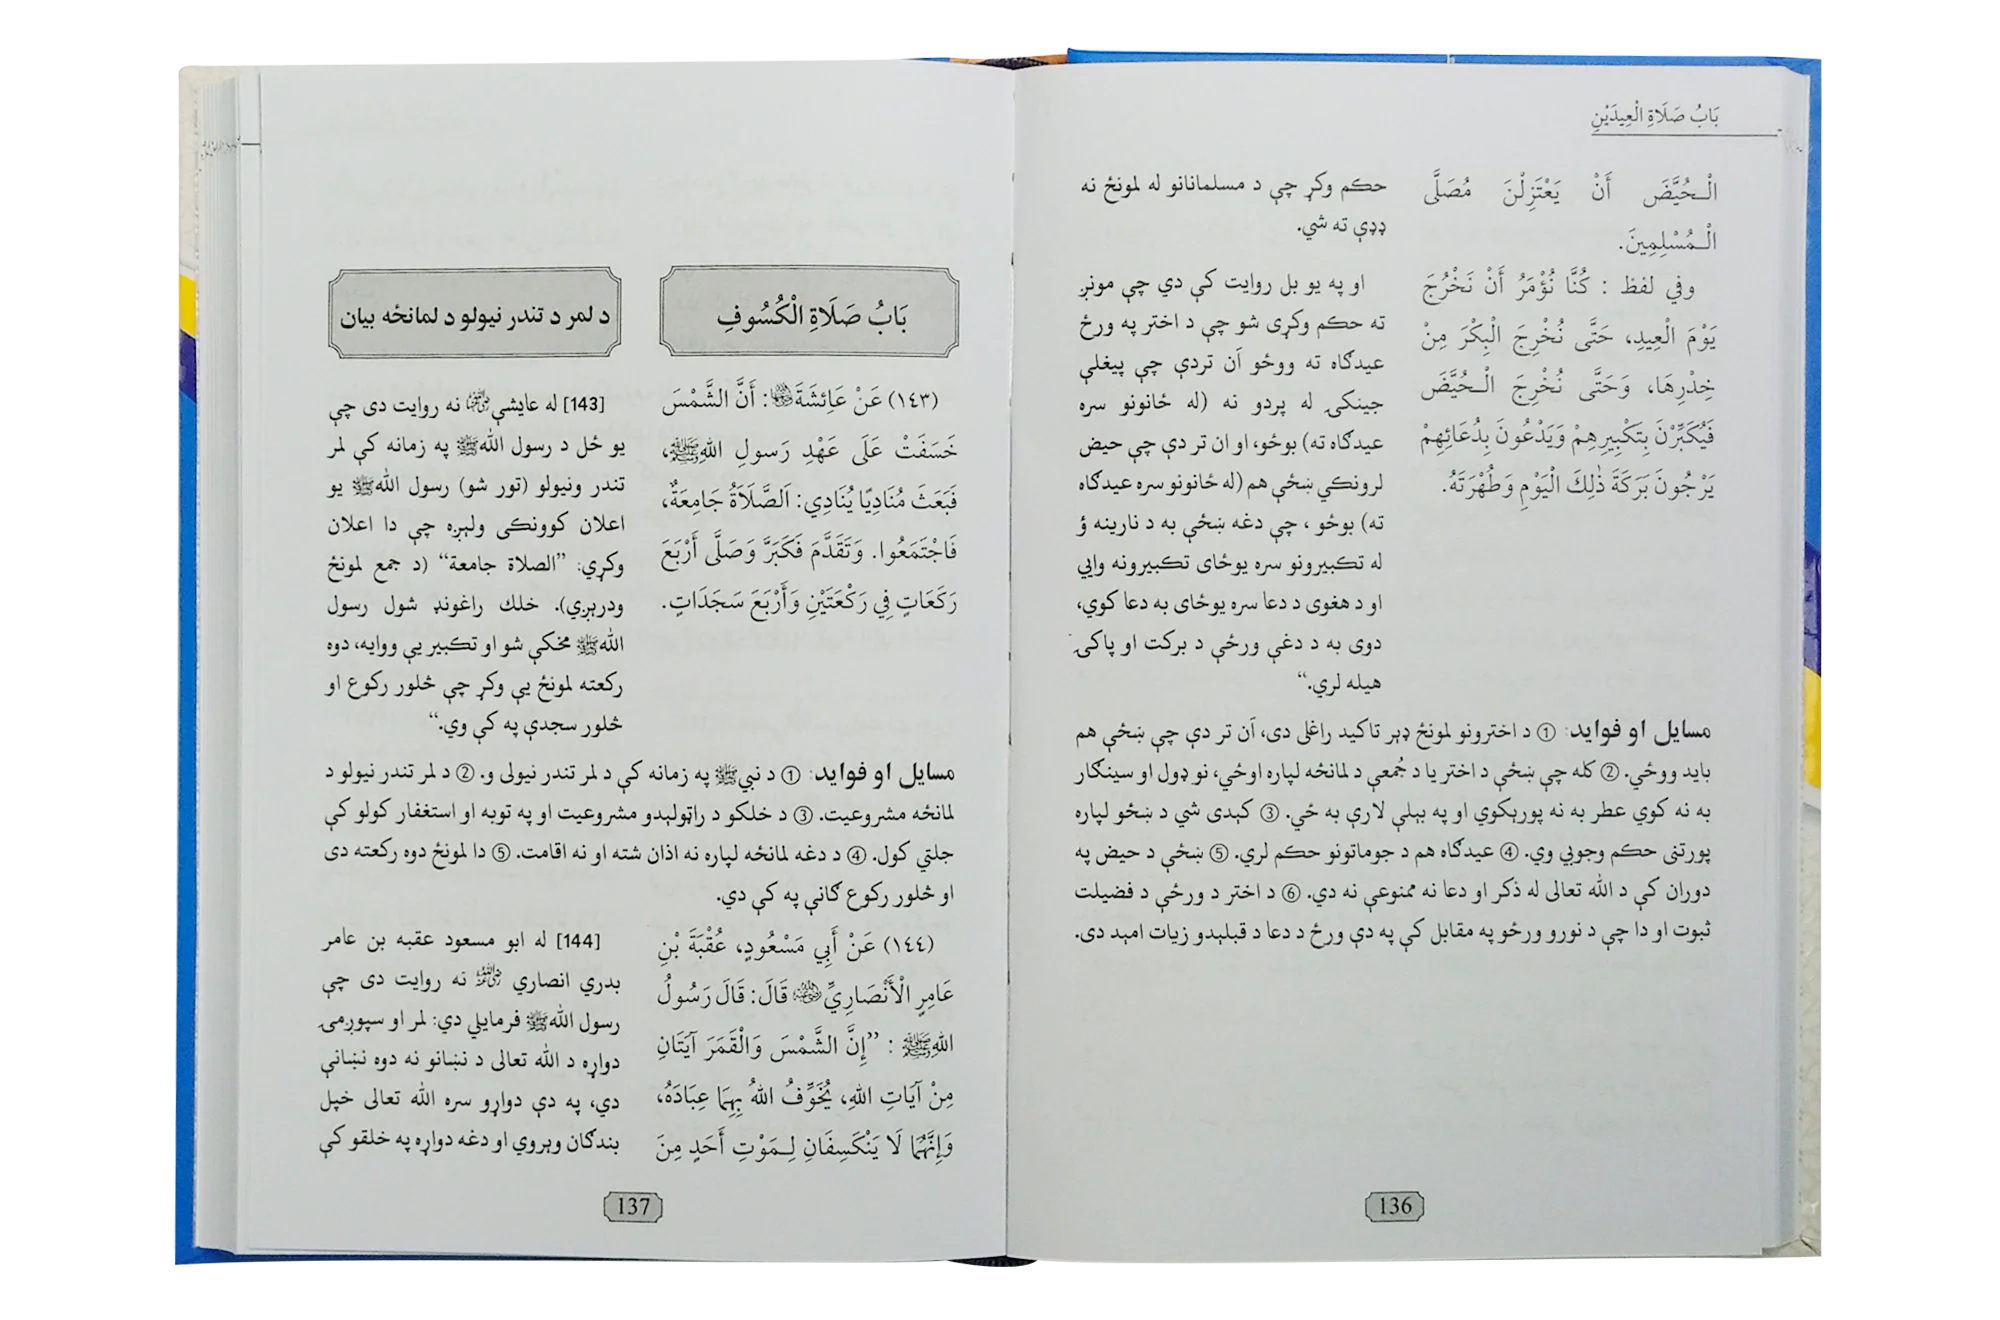 بَابُ صَلَاةِ الْعِيدَيْنِ
الْـحُيَّضَ أَنْ يَعْتَزِلْنَ مُصَلَّى
الْـمُسْلِمِينَ.
وفي لفظ : كُنَّا نُؤْمَرُ أَنْ نَخْرُجَ
يَوْمَ الْعِيدِ، حَتَّى نُخْرِجَ الْبِكْرَ مِنْ
خِدْرِهَا، وَحَتَّى نُخْرِجَ الْـحُيَّضَ
فَيُكَبِّرْنَ بِتَكْبِيرِهِمْ وَيَدْعُونَ بِدُعَائِهِمْ
يَرْجُونَ بَرَكَةَ ذٰلِكَ الْيَوْمِ وَطُهْرَتَهُ.
حکم وکړ چې د مسلمانانو له لمونځ نه
ډډې ته شي.
او په یو بل روایت کې دي چې مونږ
ته حکم وکړی شو چې د اختر په ورځ
عیدګاه ته ووځو اَن تردې چې پیغلې
جینکۍ له پردو نه (له ځانونو سره
عیدګاه ته) بوځو، او ان تر دې چې حیض
لرونکي ښځې هم (له ځانونو سره عیدګاه
ته) بوځو ، چې دغه ښځې به د نارینه ؤ
له تکبیرونو سره یوځای تکبیرونه وایي
او د هغوی د دعا سره یوځای به دعا کوي،
دوی به د دغې ورځې د برکت او پاکۍ
هیله لري.“
مسایل او فواید: ① د اخترونو لمونځ ډېر تاکید راغلی دی، اَن تر دې چې ښځې هم
باید ووځي. ② کله چې ښځې د اختر یا د جُمعې د لمانځه لپاره اوځي، نو ډول او سینګار
به نه کوي عطر به نه پورېکوي او په بېلې لارې به ځي. ③ کېدی شي د ښځو لپاره
پورتنی حکم وجوبي وي. ④ عیدګاه هم د جوماتونو حکم لري. ⑤ ښځې د حیض په
دوران کې د الله تعالی له ذکر او دعا نه ممنوعې نه دي. ⑥ د اختر د ورځې د فضیلت
ثبوت او دا چې د نورو ورځو په مقابل کې په دې ورځ د دعا د قبلېدو زیات امېد دی.
136
بَابُ صَلَاةِ الْكُسُوفِ
د لمر د تندر نیولو د لمانځه بیان
(١٤٣) عَنْ عَائِشَةَ رضي الله عنها: أَنَّ الشَّمْسَ
خَسَفَتْ عَلَى عَهْدِ رَسولِ اللهِ ﷺ،
فَبَعَثَ مُنَادِيًا يُنَادِي: اَلصَّلَاةُ جَامِعَةٌ،
فَاجْتَمَعُوا. وَتَقَدَّمَ فَكَبَّرَ وَصَلَّى أَرْبَعَ
رَكَعَاتٍ فِي رَكْعَتَيْنِ وَأَرْبَعَ سَجَدَاتٍ.
[143] له عایشې رضي الله عنها نه روایت دی چې
یو ځل د رسول الله ﷺ په زمانه کې لمر
تندر ونیولو (تور شو) رسول الله ﷺ یو
اعلان کوونکی ولېږه چې دا اعلان
وکړي: ”الصلاة جامعة“ (د جمع لمونځ
ودرېږي). خلك راغونډ شول رسول
الله ﷺ مخکې شو او تکبیر یې ووایه، دوه
رکعته لمونځ یې وکړ چې څلور رکوع او
څلور سجدې په کې وي.“
مسایل او فواید: ① د نبي ﷺ په زمانه کې د لمر تندر نیولی و. ② د لمر تندر نیولو د
لمانځه مشروعیت. ③ د خلکو د راټولېدو مشروعیت او په توبه او استغفار کولو کې
جلتي کول. ④ د دغه لمانځه لپاره نه اذان شته او نه اقامت. ⑤ دا لمونځ دوه رکعته دی
او څلور رکوع ګانې په کې دي.
(١٤٤) عَنْ أَبِي مَسْعُودٍ، عُقْبَةَ بْنِ
عَامِرٍ الْأَنْصَارِيِّ رضي الله عنه قَالَ: قَالَ رَسُولُ
اللهِ ﷺ : ”إِنَّ الشَّمْسَ وَالْقَمَرَ آيَتَانِ
مِنْ آيَاتِ اللهِ، يُخَوِّفُ اللهُ بِهِمَا عِبَادَهُ،
وَإِنَّهُمَا لَا يَنْكَسِفَانِ لِـمَوْتِ أَحَدٍ مِنَ
[144] له ابو مسعود عقبه بن عامر
بدري انصاري رضي الله عنه نه روایت دی چې
رسول الله ﷺ فرمایلي دي: لمر او سپوږمۍ
دواړه د الله تعالی د نښانو نه دوه نښانې
دي، په دې دواړو سره الله تعالی خپل
بندګان وېروي او دغه دواړه په خلقو کې
137